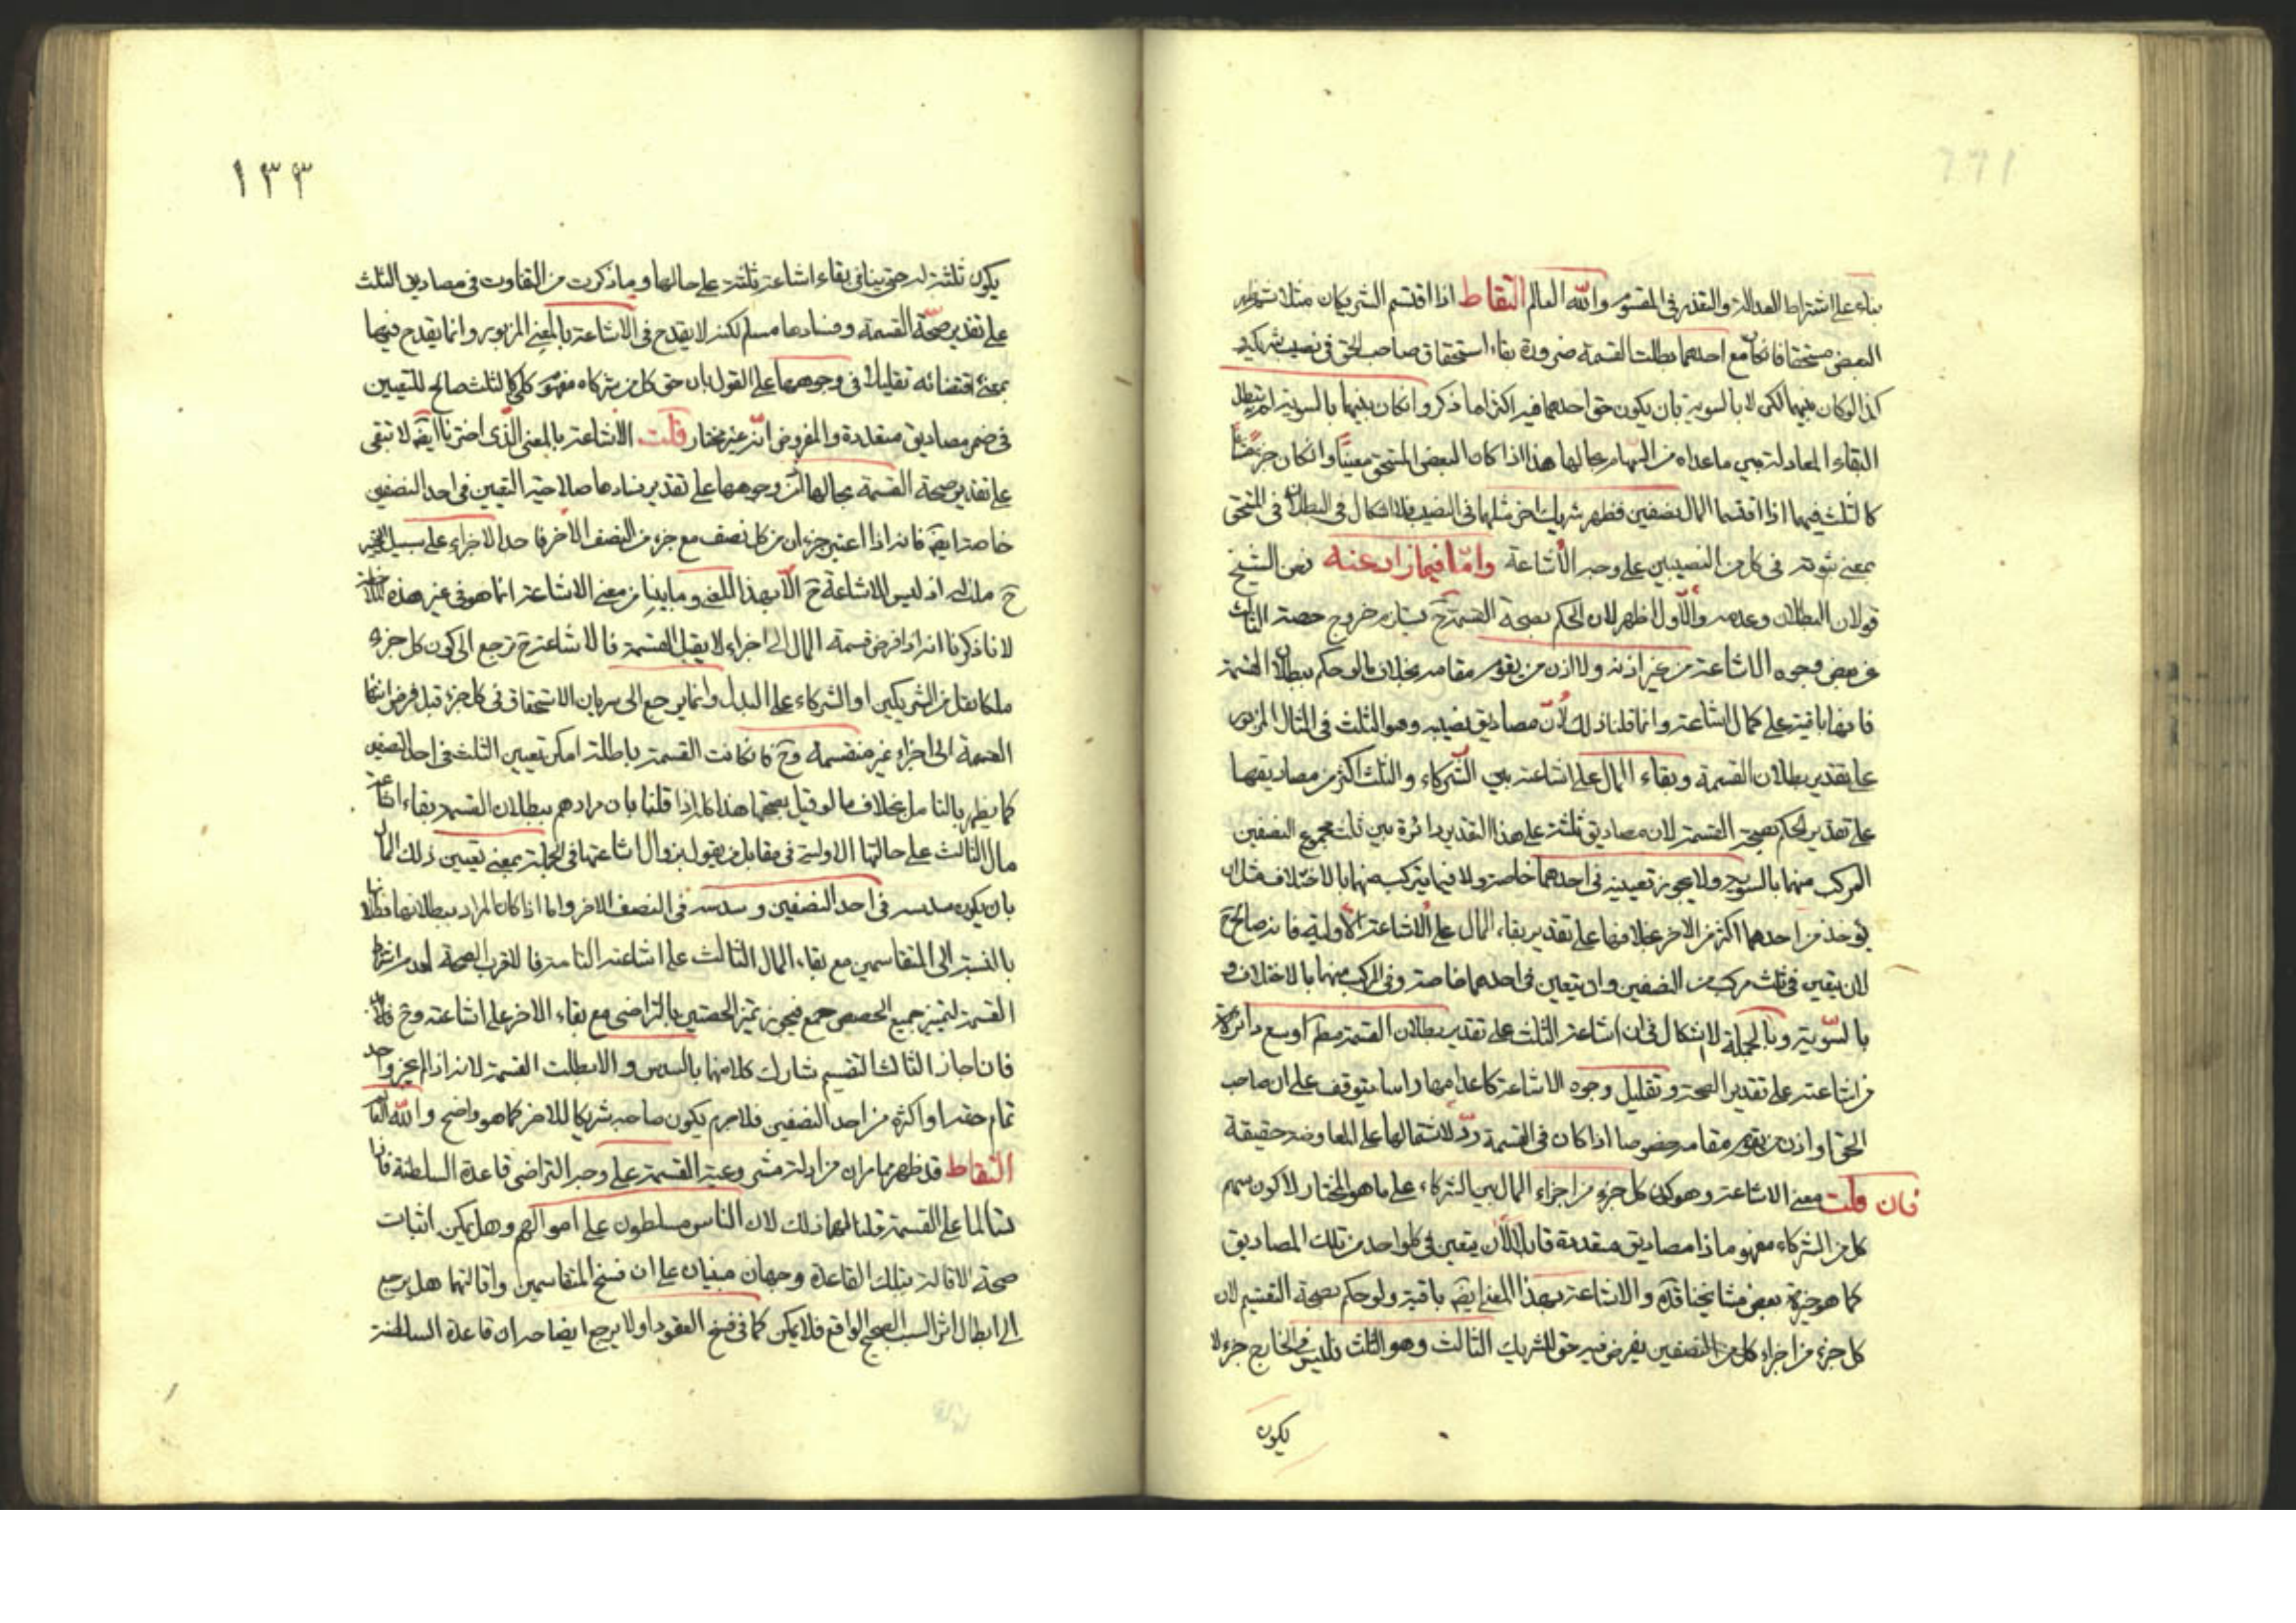 بناء على اشتراط العدالة والتقدير في المقسوم والله العالم التقاط اذا اقتسم الشريكان مثلا ثم ظهر
البعض مستحقا فان كان مع احدهما بطلت القسمة ضرورة بقاء استحقاق صاحب الحق في نصيب شريكه
كذا لو كان بينهما لكن لا بالسوية بان يكون حق احدهما فيه اكثر لما ذكر وان كان بينهما بالسوية لم تبطل
لبقاء المعادلة بين ما عداه من السهام بحالها هذا اذا كان البعض المستحق معينا وان كان جزء مشاعا
كالثلث فيهما اذا اقتسما المال نصفين فظهر شريك اخر مثلهما في النصيب فلا اشكال في البطلان في المستحق
بمعنى ثبوته في كل من النصيبين على وجه الاشاعة واما فيما زاد عنه فعن الشيخ
قولان البطلان وعدمه والاول اظهر لان الحكم بصحة القسمة ح يستلزم خروج حصة الثالث
عن بعض وجوه الاشاعة من غير اذنه ولا اذن من يقوم مقامه بخلاف ما لو حكم ببطلان القسمة
فانها باقية على كمال اشاعته وانما قلنا ذلك لان مصاديق نصيبه وهو الثلث في المثال المزبور
على تقدير بطلان القسمة وبقاء المال على اشاعته بين الشركاء والثلث اكثر من مصاديقها
على تقدير الحكم بصحة القسمة لان مصاديق ثلثه على هذا التقدير دائرة بين ثلث مجموع النصفين
المركب منهما بالسوية ولا يجوز تعيينه في احدهما خاصة ولا فيما يتركب منهما بالاختلاف مثل ان
يؤخذ من احدهما اكثر من الاخر بخلافها على تقدير بقاء المال على الاشاعة الاولية فانه صالح ح
لان يتعين في ثلث مركب من النصفين وان يتعين في احدهما خاصة وفي المركب منهما بالاختلاف و
بالسوية وبالجملة لا اشكال في ان اشاعة الثلث على تقدير بطلان القسمة مطلقا اوسع دائرة
من اشاعته على تقدير الصحة وتقليل وجوه الاشاعة كاعدامها راسا يتوقف على اذن صاحب
الحق او اذن من يقوم مقامه خصوصا اذا كان في القسمة رد لاشتمالها على المعاوضة حقيقة
فان قلت معنى الاشاعة وهو كون كل جزء من اجزاء المال بين الشركاء على ما هو المختار لا كون سهم
كل من الشركاء مفهوما ذا مصاديق متعددة قابلا لان يتعين في كل واحد من تلك المصاديق
كما هو خيرة بعض مشايخنا قده والاشاعة بهذا المعنى ايضا باقية ولو حكم بصحة التقسيم لان
كل جزء من اجزاء كل من النصفين يفرض فيه حق للشريك الثالث وهو الثلث فليس في الخارج جزء لا
يكون
١٣٣
يكون ثلثه له حتى ينافي بقاء اشاعة ثلثه على حالها وما ذكرت من التفاوت في مصاديق الثلث
على تقدير صحة القسمة وفسادها مسلم لكنه لا يقدح في الاشاعة بالمعنى المزبور وانما يقدح فيها
بمعنى اقتضائه تقليلا في وجوهها على القول بان حق كل من الشركاء مفهوم كلي كالثلث صالح للتعيين
في ضمن مصاديق متعددة والمفروض انه غير مختار قلت الاشاعة بالمعنى الذي اخترنا ايضا لا تبقى
على تقدير صحة القسمة بحالها لان وجوهها على تقدير فسادها صلاحية التعين في احد النصفين
خاصة ايضا فانه اذا اعتبر جزءان من كل نصف مع جزء من النصف الاخر فاحد الاجزاء على سبيل التخيير
ح ملك له اذ ليس للاشاعة ح الا بهذا المعنى وما بينا من معنى الاشاعة انما هو في غير هذه الحالة
لانا ذكرنا انه اذا فرض قسمة المال الى اجزاء لا يقبل القسمة فالاشاعة ح ترجع الى كون كل جزء
ملكا لكل من الشريكين او الشركاء على البدل وانما يرجع الى سريان الاستحقاق في كل جزء قبل فرض انتهاء
القسمة الى اجزاء غير منقسمة وح فان كانت القسمة باطلة امكن تعيين الثلث في احد النصفين
كما يظهر بالتامل بخلاف ما لو قيل بصحتها هذا كله اذا قلنا بان مرادهم ببطلان القسمة بقاء اشاعة
مال الثالث على حالتها الاولية في مقابل من يقول بزوال اشاعتها في الجملة بمعنى تعيين ذلك المال
بان يكون سدسه في احد النصفين وسدسه في النصف الاخر واما اذا كان المراد ببطلانها بطلانها
بالنسبة الى المتقاسمين مع بقاء المال الثالث على اشاعته التامة فالاقرب الصحة لعدم اشتراط
القسمة لتميز جميع الحصص جمع فيجوز تميز الحصتين بالتراضي مع بقاء الاخر على اشاعته وح فان
فان اجاز الثالث التقسيم شارك كلا منهما بالسدس والا بطلت القسمة لانه اذا لم يجز واخذ
تمام حقه او اكثره من احد النصفين فلا جرم يكون صاحبه شريكا للاخر كما هو واضح والله العالم
التقاط قد ظهر مما مر ان من ادلة مشروعية القسمة على وجه التراضي قاعدة السلطنة فان
تسالما على القسمة قلنا لهما ذلك لان الناس مسلطون على اموالهم وهل يمكن اثبات
صحة الاقالة بتلك القاعدة وجهان مبنيان على ان فسخ المتقاسمين واقالتهما هل يرجع
الى ابطال اثر السبب الصحيح الواقع فلا يمكن كما في فسخ العقود او لا يرجع ايضاحه ان قاعدة السلطنة